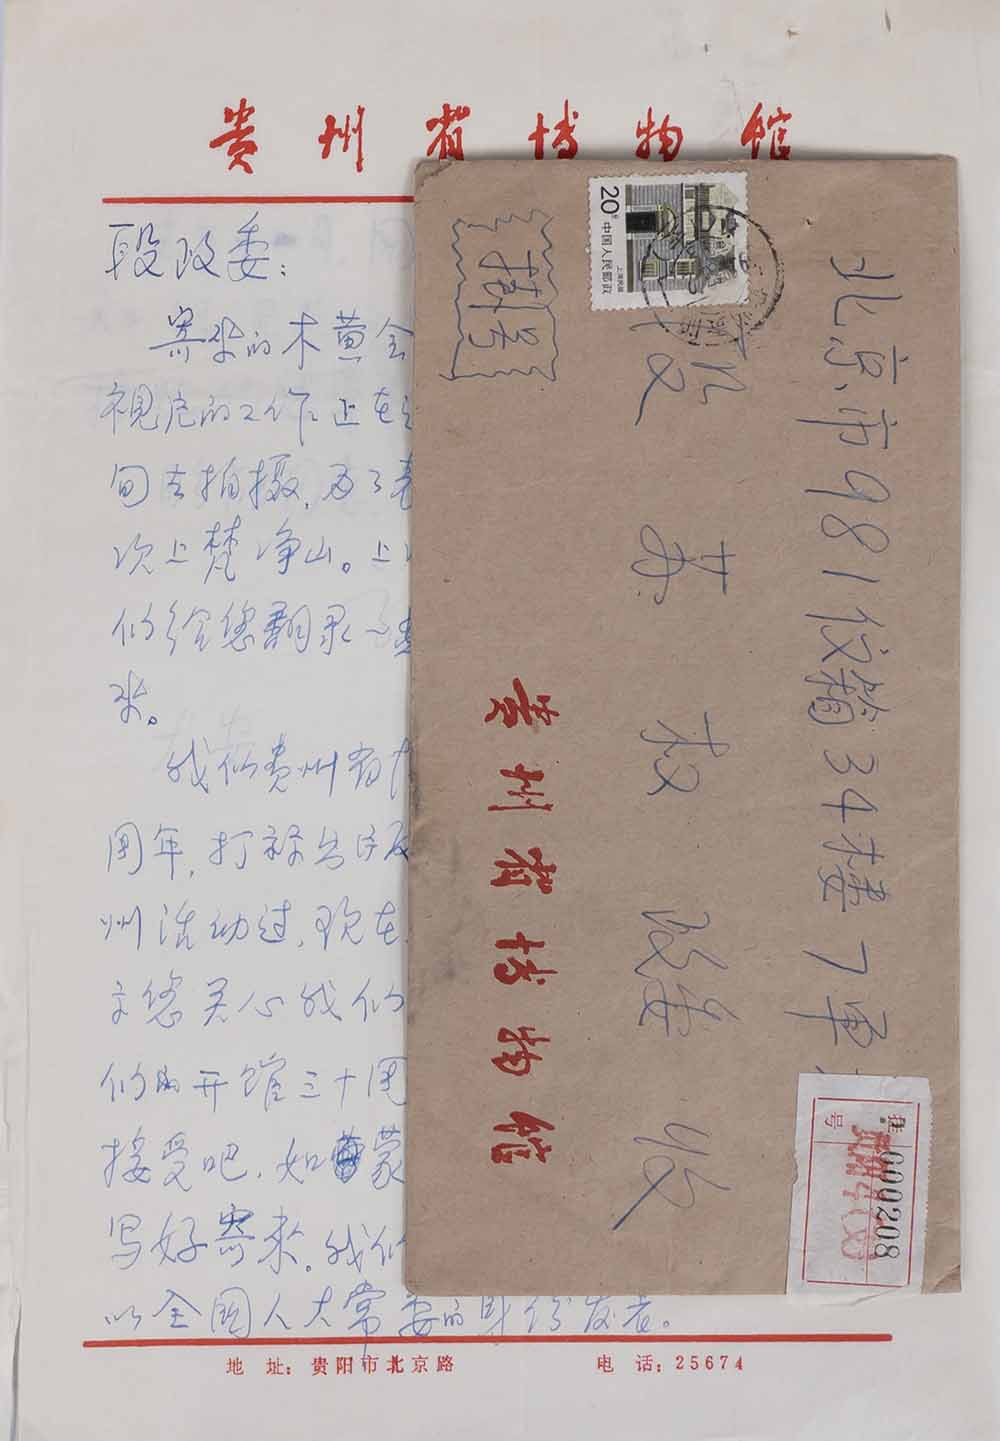 贵州省博物馆
段政委：
寄来的木黄会
视为的工作上在
旬去拍摄，为了
次上梵净山。上
们给您翻录了
来。
我们贵州省
周年，打算出版
州活动过，现在
文您关心我们
们的开馆三十周
接受吧，如蒙
写好寄来。我们
以全国人大常委的身份发表。
地 址：贵阳市北京路 电 话：25674
北京市981信箱34楼7单
段苏权政委收
贵州省博物馆
挂号
20分 中国人民邮政
上海民居
挂号
000208